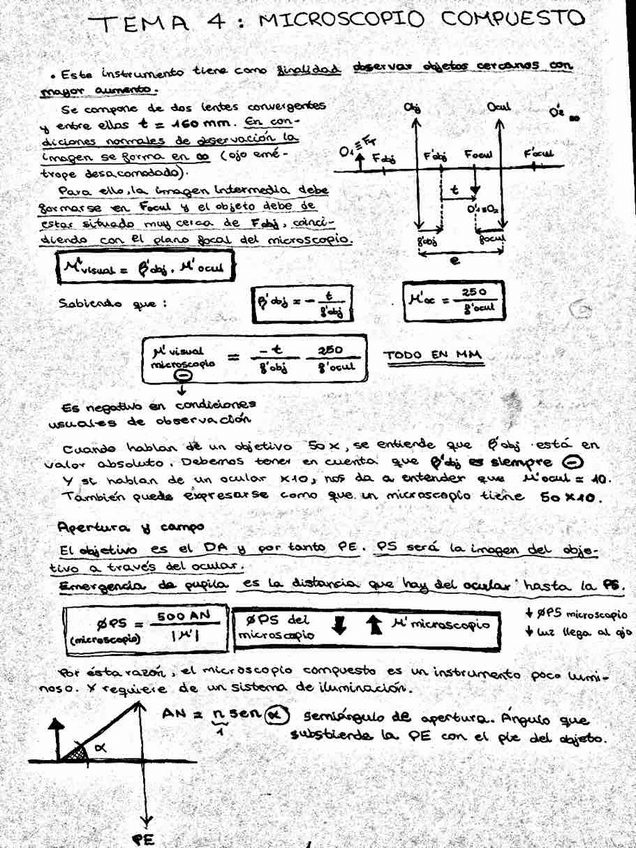 TEMA 4: MICROSCOPIO COMPUESTO
• Este instrumento tiene como finalidad observar objetos cercanos con
mayor aumento.
Se compone de dos lentes convergentes
y entre ellas t = 160 mm. En con-
diciones normales de observación la
imagen se forma en ∞ (ojo emé-
trope desacomodado).
Para ello, la imagen intermedia debe
formarse en Focul y el objeto debe de
estar situado muy cerca de Fobj, coinci-
diendo con el plano focal del microscopio.
Obj Ocul O'2 ∞
O1 ≡ FT Fobj F'obj Focul F'ocul
t
O'1≡O2
f'obj focul
e
M'visual = β'obj . M'ocul
Sabiendo que: β'obj = - t / f'obj M'oc = 250 / f'ocul
M'visual microscopio ⊖ = -t / f'obj 250 / f'ocul TODO EN MM
Es negativo en condiciones
usuales de observación
Cuando hablan de un objetivo 50x, se entiende que β'obj está en
valor absoluto. Debemos tener en cuenta que β'obj es siempre ⊖
Y si hablan de un ocular x10, nos da a entender que M'ocul = 10.
También puede expresarse como que un microscopio tiene 50x10.
Apertura y campo
El objetivo es el DA y por tanto PE. PS será la imagen del obje-
tivo a través del ocular.
Emergencia de pupila es la distancia que hay del ocular hasta la PS.
ØPS (microscopio) = 500 AN / |M'|
ØPS del microscopio ↓ ↑ M' microscopio
↓ ØPS microscopio
↓ luz llega al ojo
Por ésta razón, el microscopio compuesto es un instrumento poco lumi-
noso. Y requiere de un sistema de iluminación.
AN = n sen α semiángulo de apertura. Ángulo que
1
substiende la PE con el pie del objeto.
α
PE